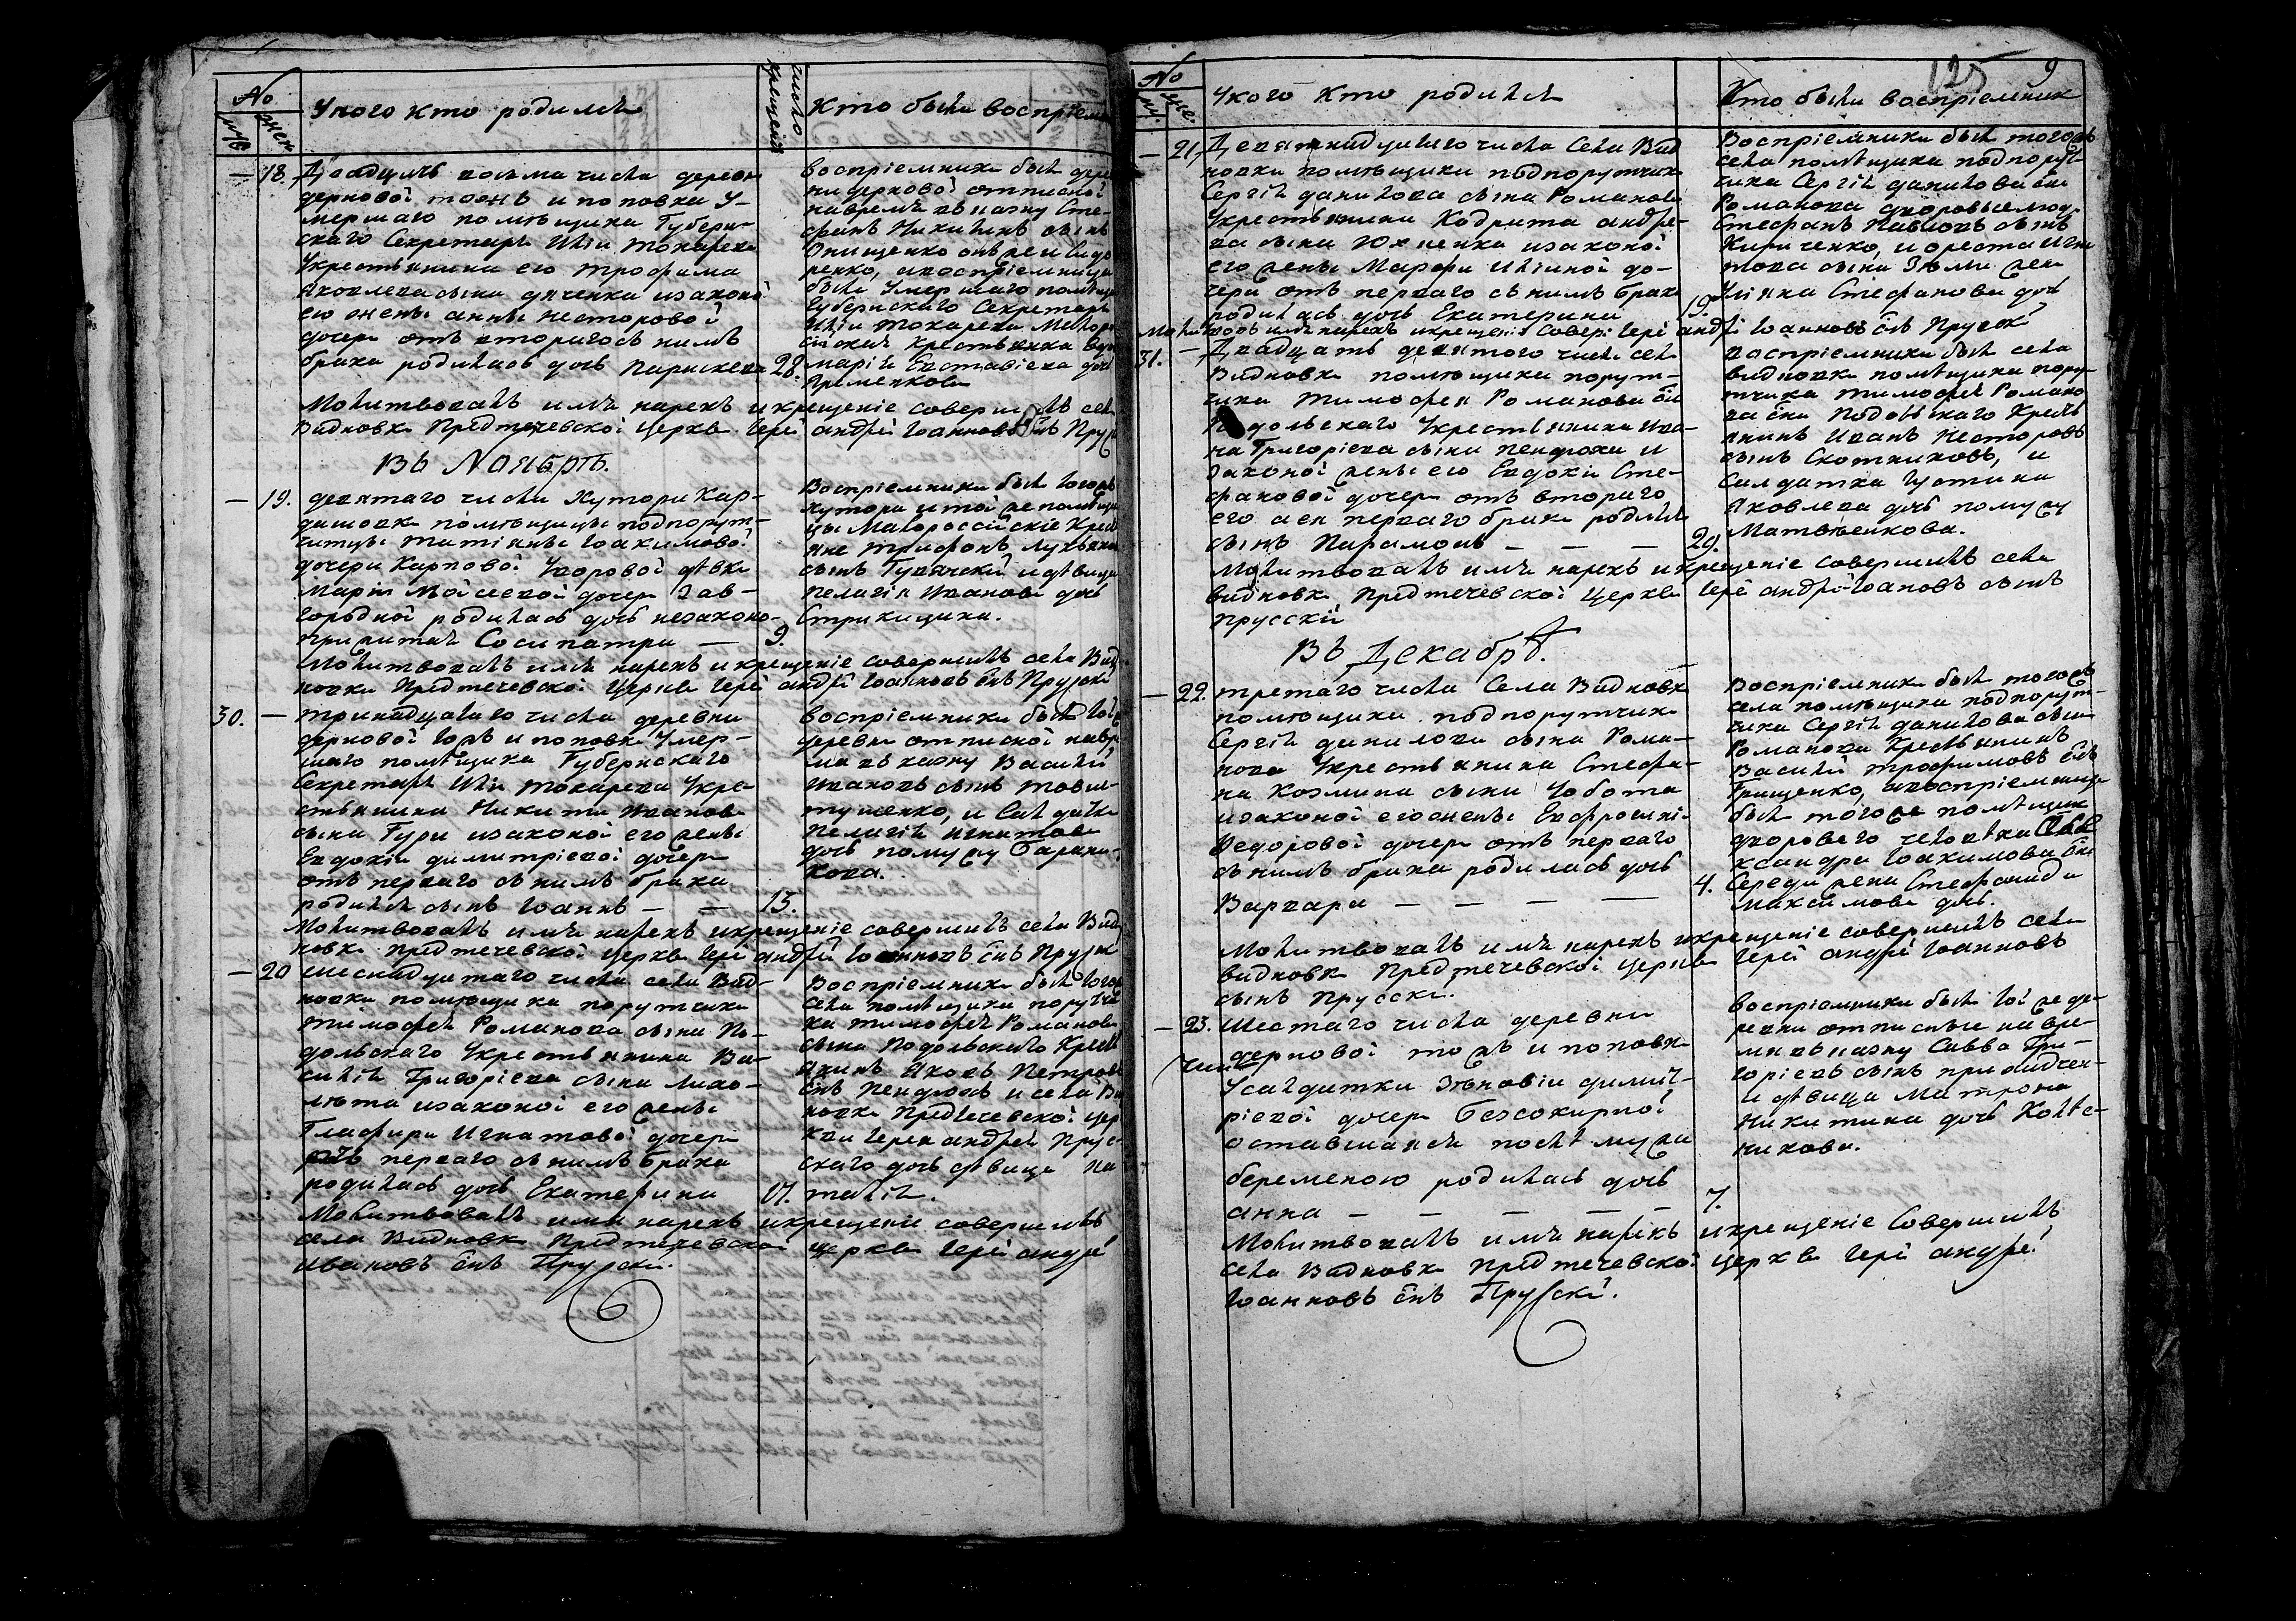 No
муж
жен
У кого кто родился
число
крещения
Кто были восприемн
— 18. Двадцать восьма числа деревни
дерновой тожъ и поповка У-
мершаго помѣщика Губерн-
скаго Секретаря Иліи Токарева
Укрестьянина его трофима
Яковлева сына дяченка изаконой
его жены анны несторовой
дочери отъ втораго съ нимъ
брака родилась дочь Параскева 28.
восприемники были дерев
ни дерновой отписной
на время въ казну Сте-
фанъ Никитинъ сынъ
Онищенко
ренко, авосприемница
была умершаго помѣщи
Губернскаго Секретаря
Иліи токарева Малоро
сійская крестьянка вдо
марія Евставіева дочь
Гременкова
Молитвовалъ имя нарекъ икрещеніе совершилъ села
Видновки Предтечевской церкви Іерей андрей Іоанновъ снъ Прус
Въ Ноябрѣ.
— 19. девятаго числа Хутора Кар-
дашовки помѣщицы подпорут-
чицы татіаны Іоакимовой
дочери Карповой Удворовой дѣвки
Маріи Моісеевой дочери Зав-
городной родилась дочь незаконо-
прижитая Сосипатра — 9.
Воспріемники были тогожъ
хутора итой же помѣщи
цы Малороссійскіе Крест
яне трифонъ Лукьяно
сынъ Гувяческій идѣвица
пелагія Иванова дочь
Стрикицина.
Молитвовалъ имя нарекъ икрещеніе совершилъ села Вид
новки Предтечевской церкви Іерей андрей Іоанновъ снъ Пруски
30. — тринадцатаго числа деревни
дерновой тожъ и поповки Умер-
шаго помѣщика Губернскаго
Секретаря Иліи токарева Укре-
стьянина Никиты Иванова
сына Гури изаконой его жены
Евдокіи димитріевой дочери
отъ перваго съ нимъ брака
родился сынъ Іоаннъ — — 15.
воспріемники были той
деревни отписной навре
мя въ казну Василій
Ивановъ сынъ товш-
тушенко, и Салдатка
пелагія игнатова
дочь помужу Барано-
кова.
Молитвовалъ имя нарекъ икрещеніе совершилъ села Вид
новки предтечевской церкви Іерей андрей Іоанновъ снъ Пруски
— 20 шеснадцатаго числа села Вид-
новки помѣщика порутчика
тимофея Романова сына По-
дольскаго Укрестьянина Ва-
силія Григоріева сына Лихо-
лѣта изаконой его жены
Глафиры Игнатовой дочери
отъ перваго съ нимъ брака
родилась дочь Екатерина 17.
Воспріемники были того
села помѣщика порутчи
ка тимофея Романова
сына Подольскаго Крест
янинъ Яковъ Петровъ
снъ Пендюхъ и села Ви
новки Предтечевской цер
кви Іерея андрея Прус-
скаго дочь дѣвица На
талія.
Молитвовалъ имя нарекъ икрещеніе совершилъ
села Видновки Предтечевской церкви Іерей андрей
Ивановъ снъ Пруски.
125 9
No
му.
же.
Укого Кто родился
Кто были воспріемники
— 21. Девятнадцатаго числа Села Вид
новки помѣщика подпорутчика
Сергія данилова сына Романова
Укрестьянина Кодрата андре-
ева сына Юхненка изаконой
его жены Марфы Иліиной до-
чери отъ перваго съ нимъ брака
родилась дочь Екатерина 19.
Воспріемники были тогожъ
села помѣщика подпорут
чика Сергія данилова сна
Романова дворовые люд
Стефанъ Павловъ сынъ
Кириченко, и ореста Игна
това сына Зюми жен
Улияна Стефанова дочь
Молитвовалъ имя нарекъ икрещеніе совер: Іерей андрей Іоанновъ снъ Пруски
31. — Двадцать девятого числа села
Видновки помѣщика порут-
чика тимофея Романова сна
Подольскаго Укрестьянина Ива-
на Григоріева сына Пендюхи и
законой жены его Евдокіи Сте-
фановой дочери отъ втораго
его а ея перваго брака родился
сынъ Парамонъ — — — 29.
воспріемники были села
видновки помѣщика пору-
тчика тимофея Романо
ва сна Подольскаго Крестья
янинъ Иванъ Несторовъ
сынъ Скотниковъ, и
Салдатка Іустина
Яковлева дочь помужу
Матвѣенкова.
Молитвовалъ имя нарекъ икрещеніе совершилъ села
видновки Предтечевской церкви Іерей андрей Іоановъ сынъ
прусскій
Въ Декабрѣ.
— 22. третаго числа Села Видновки
помѣщика подпорутчика
Сергія данилова сына Рома-
нова Укрестьянина Стефа-
на Козмина сына Чобота
изаконой его жены Евфросиніи
Федоровой дочери отъ перваго
съ нимъ брака родилась дочь
Варвара — — — — 4.
Воспріемники были тогожъ
села помѣщика подпорут-
чика Сергія данилова сына
Романова Крестьянинъ
Василій трофимовъ снъ
Грищенко, авоспріемница
была того же помѣщика
двороваго человѣка Але
ксандра Іоакимова сна
Середи жена Стефанида
Максимова дочь.
Молитвовалъ имя нарекъ икрещеніе совершилъ села
видновки Предтечевской церкви Іерей андрей Іоанновъ
сынъ Прусски.
— 23. Шестаго числа деревни
дерновой тожъ и поповки
Усалдатки Зѣновіи димит-
ріевой дочери Безсокирной
оставшаяся послѣ мужа
беременою родилась дочь
анна — — — — — 7.
воспріемники были той же де-
ревни отписные навре-
мя въ казну Савва Гри-
горіевъ сынъ прихидчен-
и дѣвица Матрона
Никитина дочь Колѣс-
никова.
Молитвовалъ имя нарекъ икрещеніе Совершилъ
села Видновки предтечевской церкви Іерей андрей
Іоанновъ снъ Пруски.